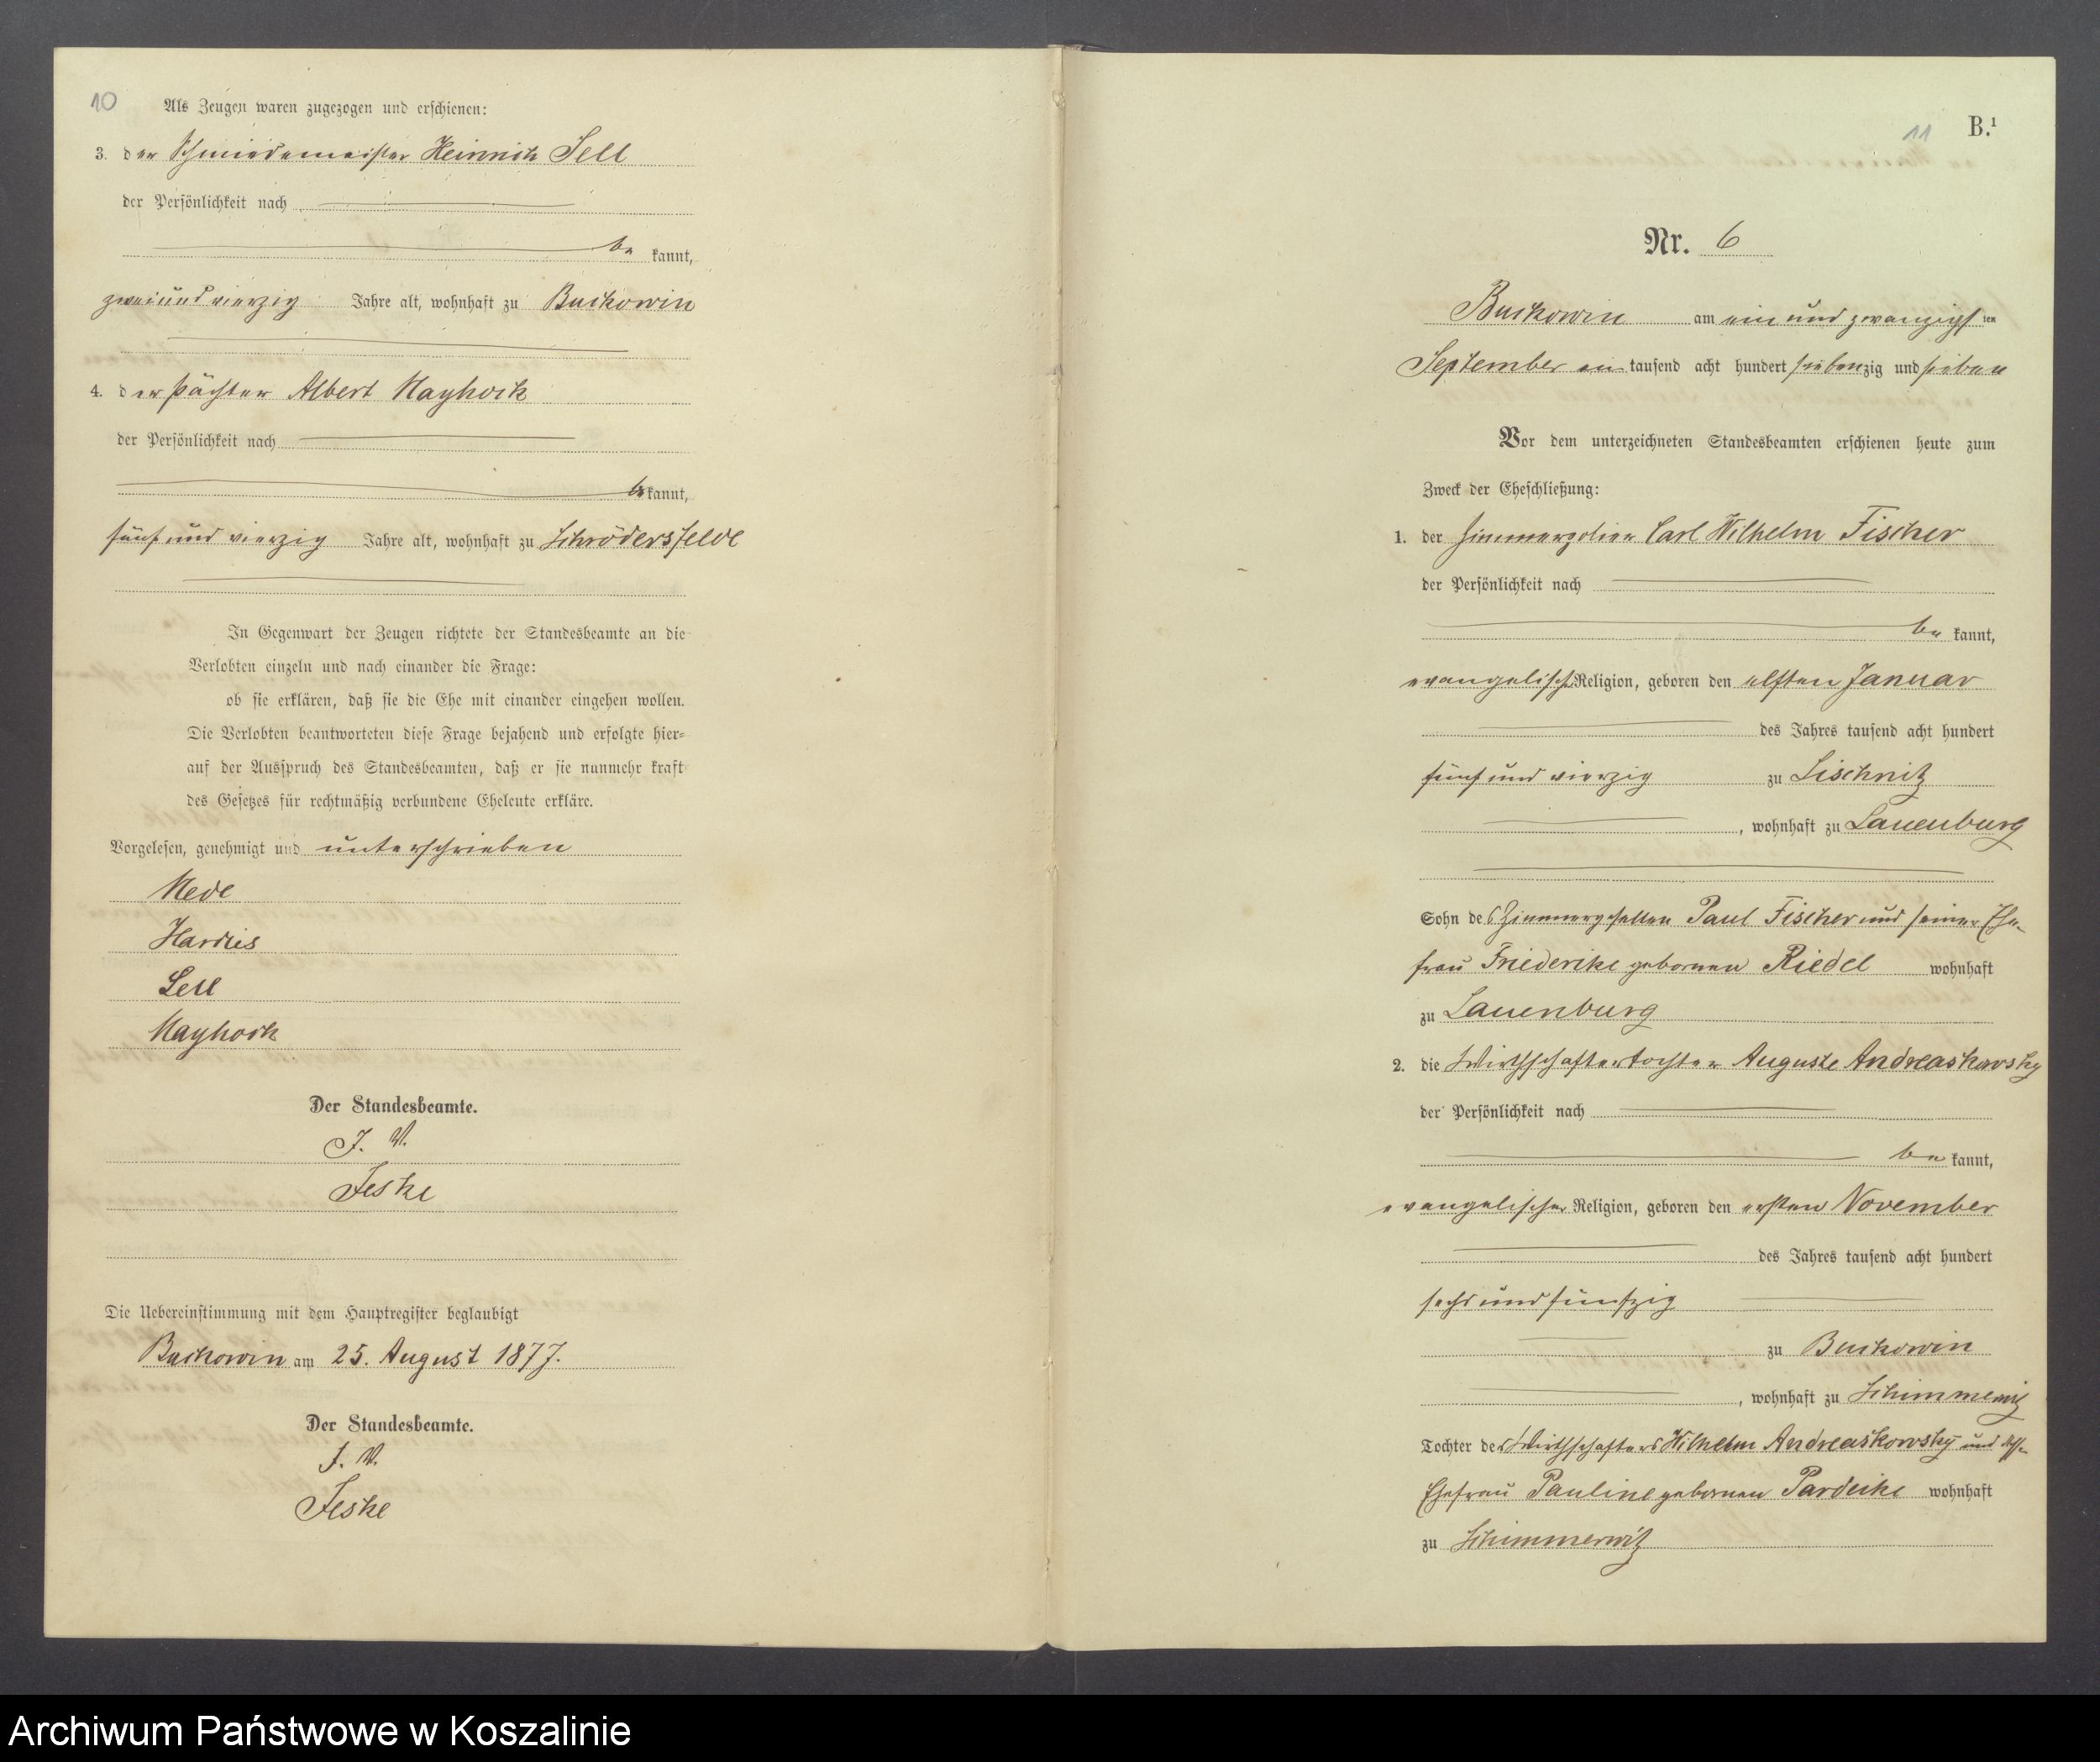 10
Als Zeugen waren zugezogen und erschienen:
3. der Schmiedemeister Heinrich Sell
der Persönlichkeit nach
be kannt,
zwei und vierzig Jahre alt, wohnhaft zu Buckowin
4. der Pächter Albert Nayhock
der Persönlichkeit nach
be kannt,
fünf und vierzig Jahre alt, wohnhaft zu Schrödersfelde
In Gegenwart der Zeugen richtete der Standesbeamte an die
Verlobten einzeln und nach einander die Frage:
ob sie erklären, daß sie die Ehe mit einander eingehen wollen.
Die Verlobten beantworteten diese Frage bejahend und erfolgte hier-
auf der Ausspruch des Standesbeamten, daß er sie nunmehr kraft
des Gesetzes für rechtmäßig verbundene Eheleute erkläre.
Vorgelesen, genehmigt und unterschrieben
Sell
Nayhock
Der Standesbeamte.
J. V.
Jeske
Die Uebereinstimmung mit dem Hauptregister beglaubigt
Buckowin am 25. August 1877.
Der Standesbeamte.
J. V.
Jeske
11
B.1
Nr. 6
Buckowin am ein und zwanzigsten
September ein tausend acht hundert siebenzig und sieben
Vor dem unterzeichneten Standesbeamten erschienen heute zum
Zweck der Eheschließung:
1. der Zimmerpolier Carl Wilhelm Fischer
der Persönlichkeit nach
be kannt,
evangelisch Religion, geboren den elften Januar
des Jahres tausend acht hundert
fünf und vierzig zu Lischnitz
, wohnhaft zu Lauenburg
Sohn des Zimmergesellen Paul Fischer und seiner Ehe-
frau Friederike gebornen Riedel wohnhaft
zu Lauenburg
2. die Wirthschaftertochter Auguste Andreaskowsky
der Persönlichkeit nach
be kannt,
evangelischer Religion, geboren den ersten November
des Jahres tausend acht hundert
sechs und fünfzig
zu Buckowin
, wohnhaft zu Schimmerwitz
Tochter des Wirthschafters Wilhelm Andreaskowsky und
Ehefrau Pauline gebornen Pardeike wohnhaft
zu Schimmerwitz
Archiwum Państwowe w Koszalinie